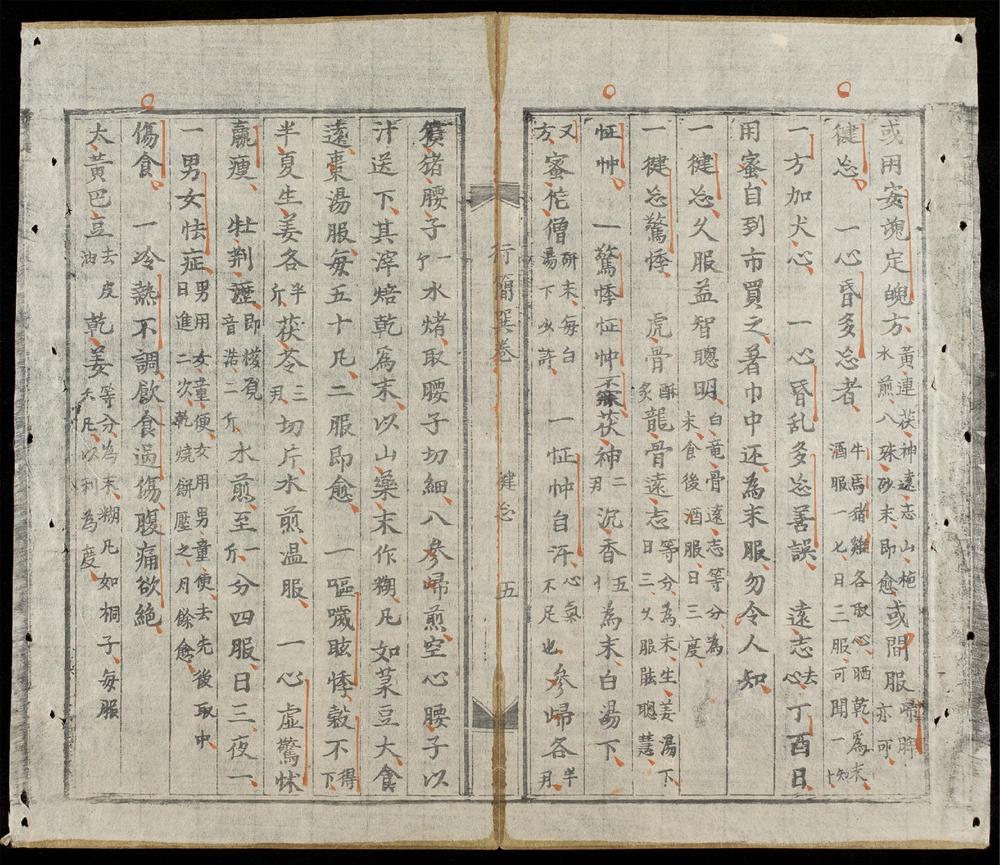 或用安魂定魄方黃連茯神遠志山梔水煎八硃砂末即愈或間服歸脾亦可
健忘 一心昏多忘者牛馬猪雞各取心晒乾為末酒服一七日二服可聞一知十
一方加犬心 一心昏乱多忘善誤 遠志去心丁酉日
用蜜自到市買之著巾中还為末服勿令人知
一健忘久服益智聰明白竜骨遠志等分為末食後酒服日三度
一健忘驚悸 虎骨酥炙龍骨遠志等分為末生姜湯下日三久服聡慧
怔忡 一驚悸怔忡茯神二刃沉香五卜為末白湯下
又方蜜佗僧研末每白湯下 一怔忡自汗心氣不足也參歸各半刃
行簡巽卷 健忘 五
豶猪腰子一水煑取腰子切細八參歸煎空心腰子以
汁送下其滓焙乾為末以山藥末作糊凡如菉豆大食
遠棗湯服每五十凡二服即愈 一嘔噦眩悸穀不得下
半夏生姜各半斤茯苓三刃切片水煎温服 一心虛驚怵
羸瘦 牡荆瀝即梭音浩二斤水煎至一斤分四服日三夜一
一男女怯症男用女童便女用男童便去先後取中日進二次乾燒餅壓之月餘愈
傷食 一冷熱不調飲食過傷腹痛欲絶
大黃巴豆去皮油乾姜等分為末糊凡如桐子每服六凡以利為度